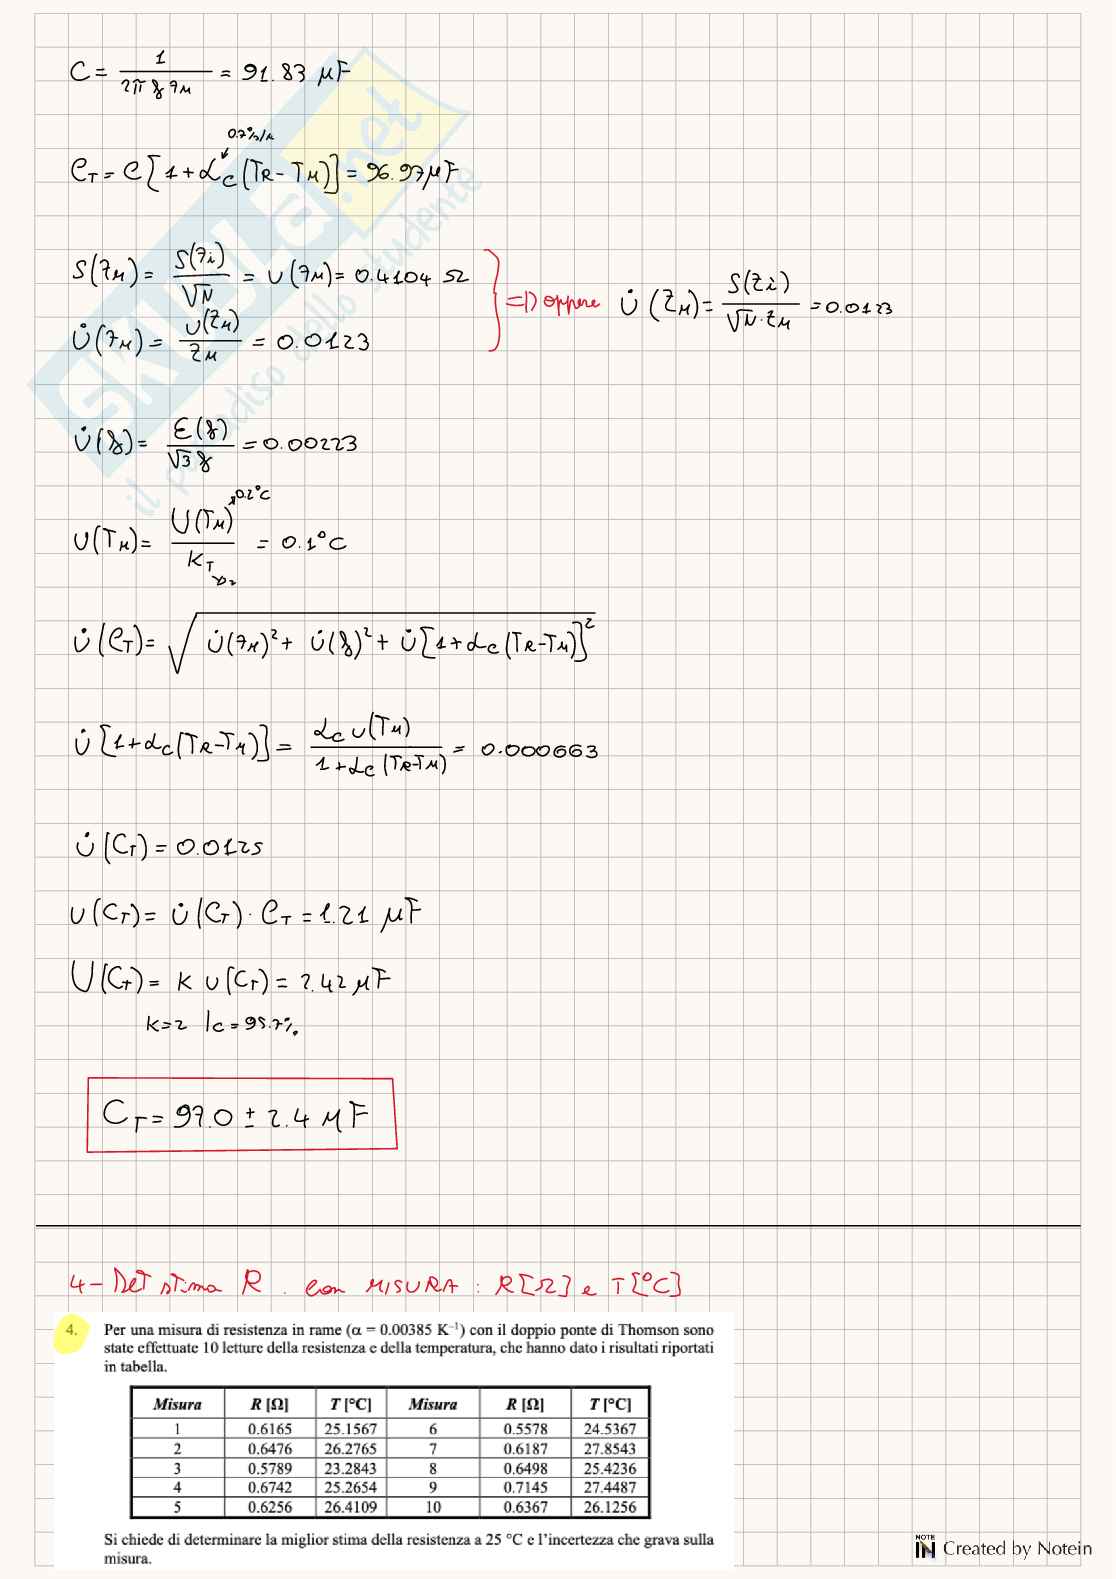 C = 1 / (2π f zM) = 91.83 μF
0.7%/K
CT = C [1 + αC (TR - TM)] = 96.97 μF
S(zM) = S(zi) / √N = u(zM) = 0.4104 Ω
u̇(zM) = u(zM) / zM = 0.0123
=D oppure u̇(zM) = S(zi) / (√N · zM) = 0.0123
u̇(f) = ε(f) / (√3 f) = 0.00223
0.2°C
u(TM) = U(TM) / KT = 0.1°C
2
u̇(CT) = √(u̇(zM)² + u̇(f)² + u̇[1 + αC (TR - TM)]²)
u̇[1 + αC (TR - TM)] = αC u(TM) / (1 + αC (TR - TM)) = 0.000663
u̇(CT) = 0.0125
u(CT) = u̇(CT) · CT = 1.21 μF
U(CT) = K u(CT) = 2.42 μF
K = 2 | c = 95.7%
CT = 97.0 ± 2.4 μF
4 - Det stima R. con MISURA: R[Ω] e T[°C]
4. Per una misura di resistenza in rame (α = 0.00385 K⁻¹) con il doppio ponte di Thomson sono
state effettuate 10 letture della resistenza e della temperatura, che hanno dato i risultati riportati
in tabella.
Misura R [Ω] T [°C] Misura R [Ω] T [°C]
1 0.6165 25.1567 6 0.5578 24.5367
2 0.6476 26.2765 7 0.6187 27.8543
3 0.5789 23.2843 8 0.6498 25.4236
4 0.6742 25.2654 9 0.7145 27.4487
5 0.6256 26.4109 10 0.6367 26.1256
Si chiede di determinare la miglior stima della resistenza a 25 °C e l'incertezza che grava sulla
misura.
SKUOLA.net
il paradiso dello studente
NOTE
IN Created by Notein